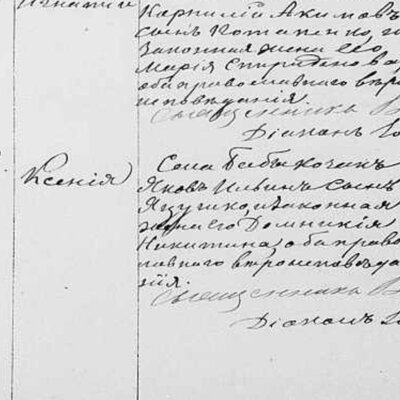 Игнатий
Карпилій Акимовъ
сынъ Потапенко, и
законная жена его
Марія Спиридонова
оба православнаго вѣро
исповѣданія.
Священникъ
Діаконъ
Ксенія
Села Бабыкочакъ
Яковъ Ильинъ сынъ
Яцушко, и законная
жена его Домникія
Никитина, оба право
славнаго вѣроисповѣда
нія.
Священникъ
Діаконъ